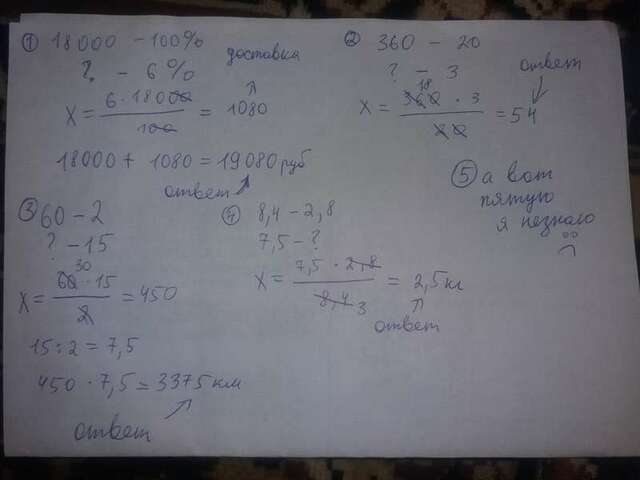 ① 18000 - 100%
? - 6%
доставка
X = 6·18000 / 100 = 1080
18000 + 1080 = 19080 руб
ответ
② 360 - 20
? - 3
ответ
18
X = 360 · 3 / 20 = 54
③ 60 - 2
? - 15
30
X = 60 · 15 / 2 = 450
15 : 2 = 7,5
450 · 7,5 = 3375 км
ответ
④ 8,4 - 2,8
7,5 - ?
X = 7,5 · 2,8 / 8,4 3 = 2,5 кг
ответ
⑤ а вот
пятую
я незнаю